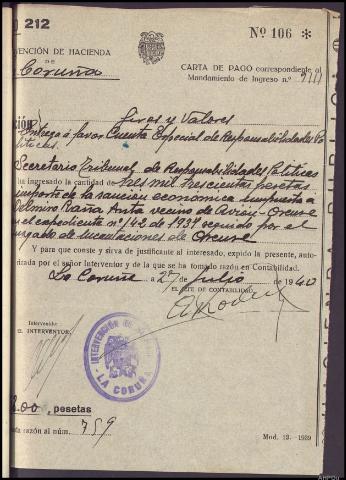 212
Nº 106 *
VENCIÓN DE HACIENDA
DE
Coruña
CARTA DE PAGO correspondiente al
Mandamiento de Ingreso n.º
CIÓN
Giros y Valores
Entrega a favor Cuenta Especial de Responsabilidades Po
líticas.
Secretario Tribunal de Responsabilidades Políticas
ha ingresado la cantidad de tres mil trescientas pesetas
importe de la sanción económica impuesta a
Anta vecino de Avión-Orense
el expediente nº 142 de 1937 seguido por el
uzgado de Incautaciones de Orense
Y para que conste y sirva de justificante al interesado, expido la presente, auto-
rizada por el señor Interventor y de la que se ha tomado razón en Contabilidad.
La Coruña a 27 de Julio de 1940
EL JEFE DE CONTABILIDAD,
Intervenido
EL INTERVENTOR,
INTERVENCION DE
LA CORUÑA
00, pesetas
razón al núm. 759
Mod. 13.-1939
AHPOu